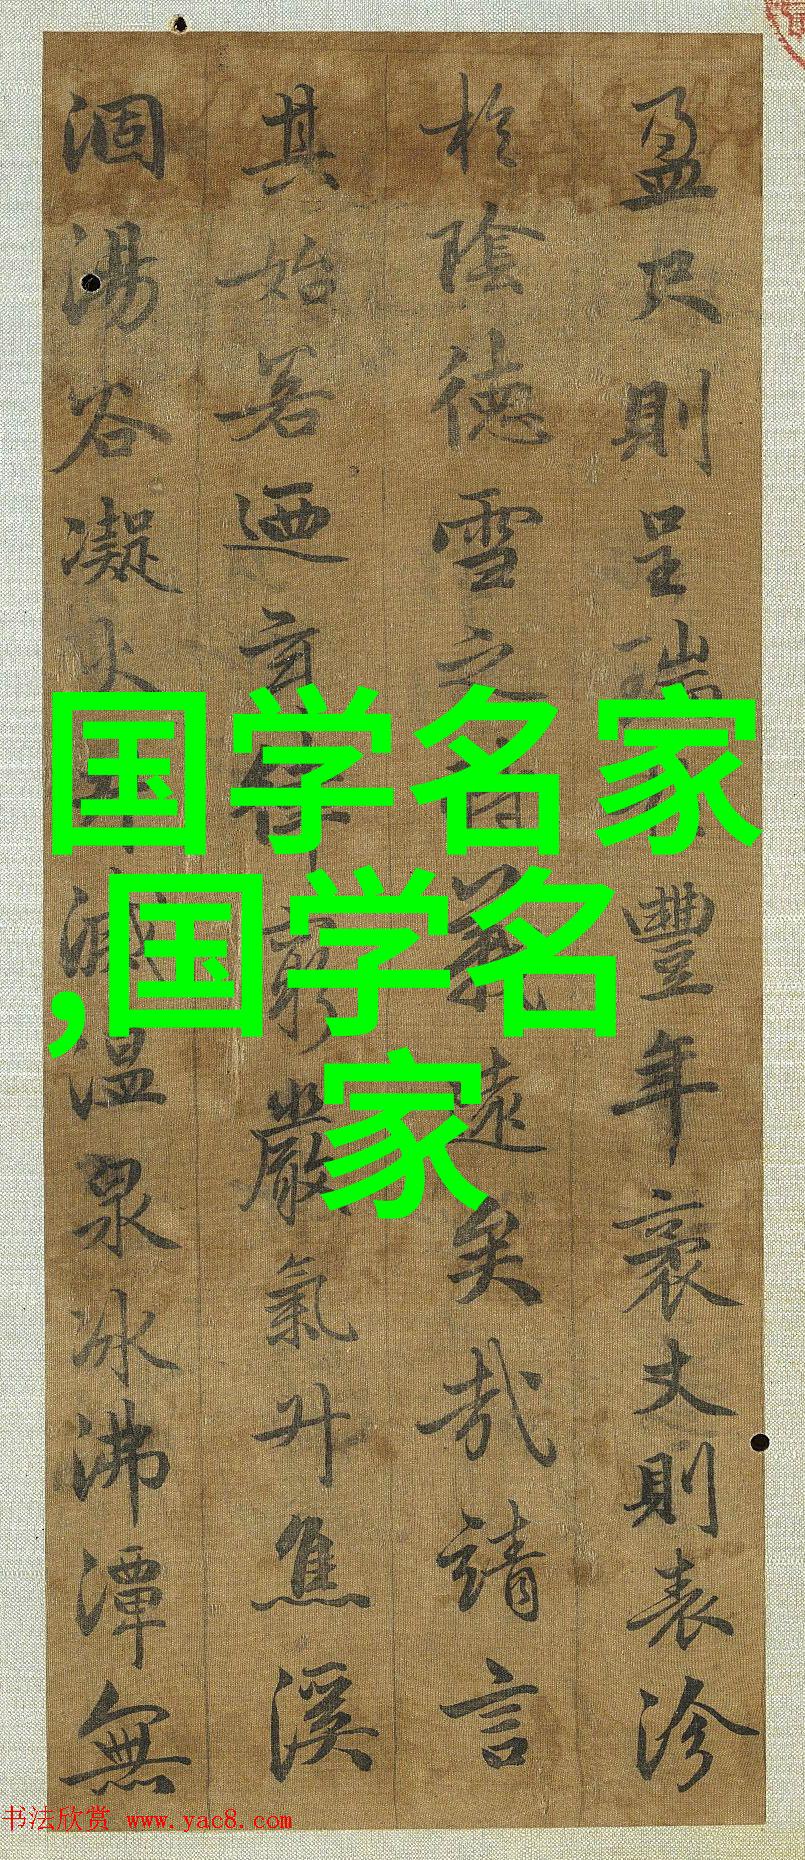 盈尺則呈瑞豐年袤丈則表沴
於陰德雪之時義遠矣哉請言
其始若迺玄律窮嚴氣升焦溪
涸湯谷凝火滅温泉冰沸潭無
国学名家
,国学名
家
书法欣赏 www.yac8.com